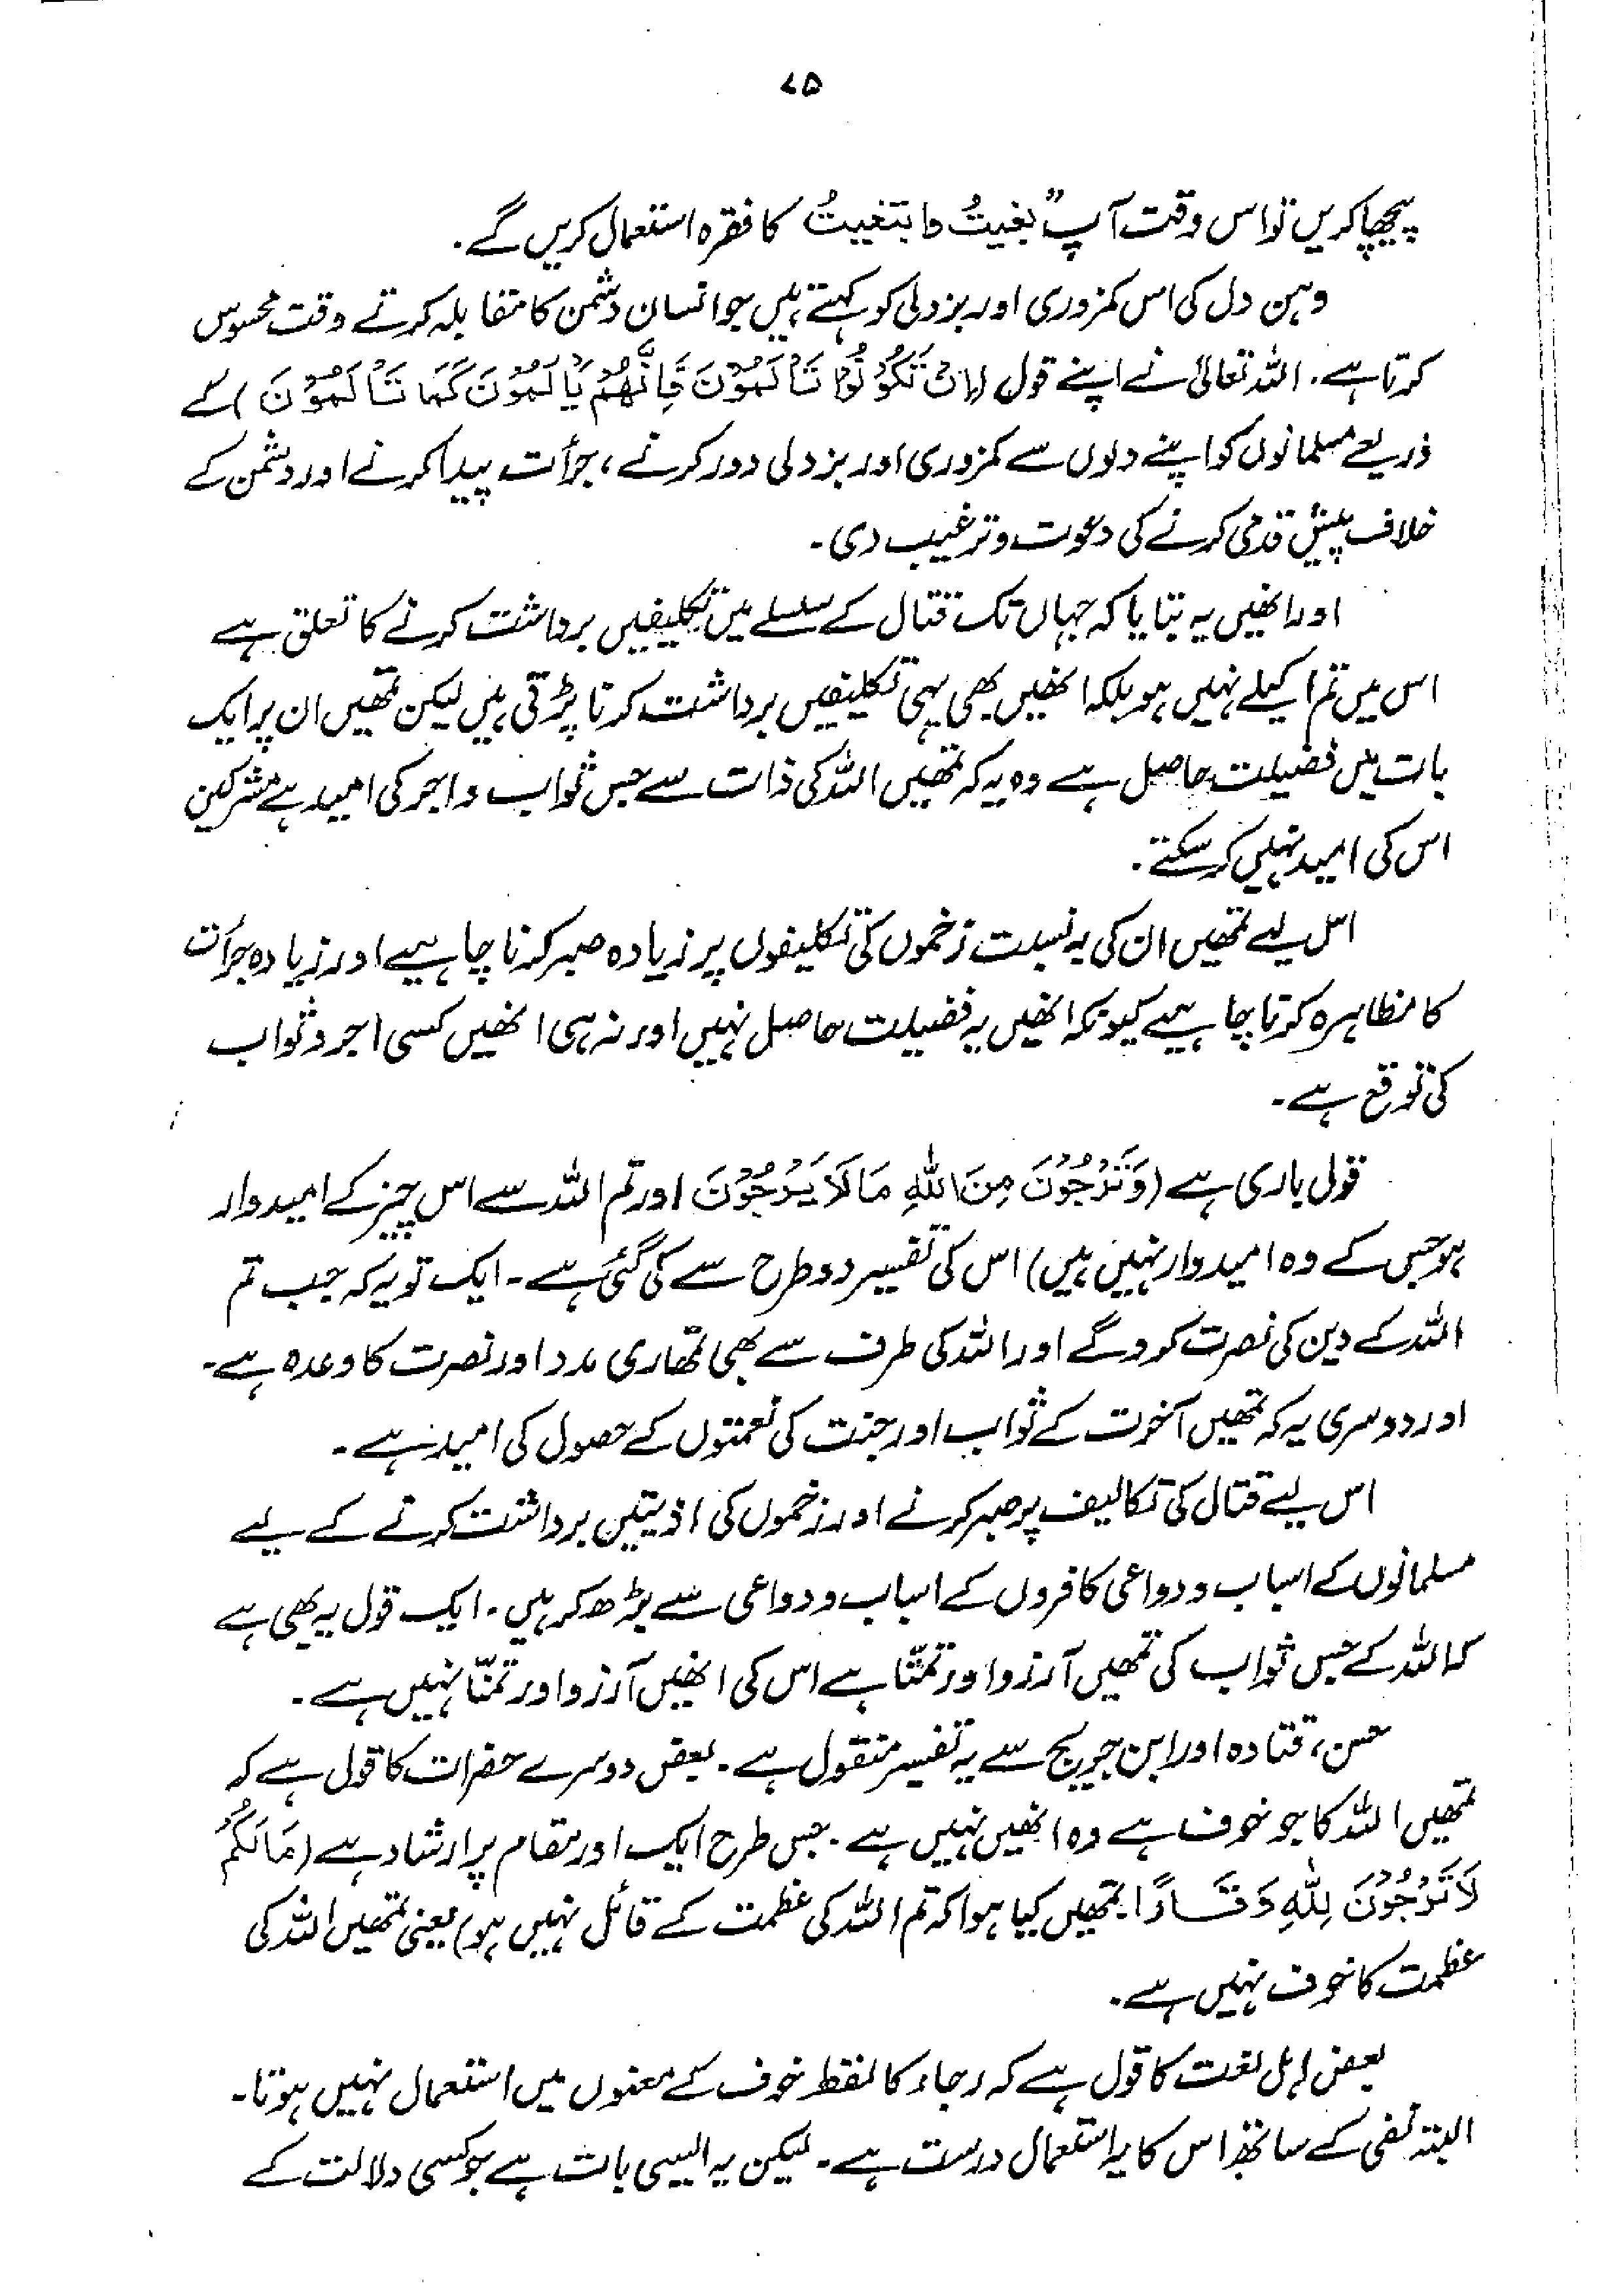 ۷۵
پیچھا کریں تو اس وقت آپ "بغیتُ وابتغیتُ کا فقرہ استعمال کریں گے۔
وہن دل کی اس کمزوری اور بزدلی کو کہتے ہیں جو انسان دشمن کا مقابلہ کرتے وقت محسوس
کرتا ہے۔ اللہ تعالیٰ نے اپنے قول (اِنْ تَکُوْنُوْا تَأْلَمُوْنَ فَاِنَّھُمْ یَأْلَمُوْنَ کَمَا تَأْلَمُوْنَ) کے
ذریعے مسلمانوں کو اپنے دلوں سے کمزوری اور بزدلی دور کرنے، جرأت پیدا کرنے اور دشمن کے
خلاف پیش قدمی کرنے کی دعوت و ترغیب دی۔
اور انھیں یہ بتایا کہ جہاں تک قتال کے سلسلے میں تکلیفیں برداشت کرنے کا تعلق ہے
اس میں تم اکیلے نہیں ہو بلکہ انھیں بھی یہی تکلیفیں برداشت کرنا پڑتی ہیں لیکن تمھیں ان پر ایک
بات میں فضیلت حاصل ہے وہ یہ کہ تمھیں اللہ کی ذات سے جس ثواب و اجر کی امید ہے مشرکین
اس کی امید نہیں کر سکتے۔
اس لیے تمھیں ان کی بہ نسبت زخموں کی تکلیفوں پر زیادہ صبر کرنا چاہیے اور زیادہ جرأت
کا مظاہرہ کرنا چاہیے کیونکہ انھیں یہ فضیلت حاصل نہیں اور نہ ہی انھیں کسی اجر و ثواب
کی توقع ہے۔
قول باری ہے (وَتَرْجُوْنَ مِنَ اللہِ مَا لَا یَرْجُوْنَ اور تم اللہ سے اس چیز کے امیدوار
ہو جس کے وہ امیدوار نہیں ہیں) اس کی تفسیر دو طرح سے کی گئی ہے۔ ایک تو یہ کہ جب تم
اللہ کے دین کی نصرت کرو گے اور اللہ کی طرف سے بھی تمھاری مدد اور نصرت کا وعدہ ہے۔
اور دوسری یہ کہ تمھیں آخرت کے ثواب اور جنت کی نعمتوں کے حصول کی امید ہے۔
اس لیے قتال کی تکالیف پر صبر کرنے اور زخموں کی اذیتیں برداشت کرنے کے لیے
مسلمانوں کے اسباب و دواعی کافروں کے اسباب و دواعی سے بڑھ کر ہیں۔ ایک قول یہ بھی ہے
کہ اللہ کے جس ثواب کی تمھیں آرزو اور تمنّا ہے اس کی انھیں آرزو اور تمنّا نہیں ہے۔
حسن، قتادہ اور ابن جریج سے یہ تفسیر منقول ہے۔ بعض دوسرے حضرات کا قول ہے کہ
تمھیں اللہ کا جو خوف ہے وہ انھیں نہیں ہے۔ جس طرح ایک اور مقام پر ارشاد ہے (مَالَکُمْ
لَا تَرْجُوْنَ لِلّٰہِ وَقَارًا۔ تمھیں کیا ہوا کہ تم اللہ کی عظمت کے قائل نہیں ہو) یعنی تمھیں اللہ کی
عظمت کا خوف نہیں ہے۔
بعض اہل لغت کا قول ہے کہ رجاء کا لفظ خوف کے معنوں میں استعمال نہیں ہوتا۔
البتہ نفی کے ساتھ اس کا یہ استعمال درست ہے۔ لیکن یہ ایسی بات ہے جو کسی دلالت کے